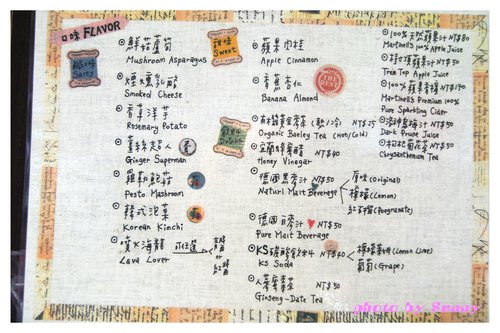 口味 FLAVOR
鹹味
Salty
鮮菇蘆筍
Mushroom Asparagus
煙燻乳酪
Smoked Cheese
香草洋芋
Rosemary Potato
薑絲超人
Ginger Superman
Pesto Mushroom
韓式泡菜
Korean Kimchi
噴火海龍
Lava Lover
甜味
Sweet
蘋果肉桂
Apple Cinnamon
香蕉杏仁
Banana Almond
THE BEST
Drink
有機黃金麥茶 (熱/冷) NT$25
Organic Barley Tea (Hot/Cold)
宜蘭蜂蜜醋 NT$40
Honey Vinegar
德國黑麥汁 NT$50
Naturl Malt Beverage
原味 (Original)
檸檬 (Lemon)
紅石榴 (Pogranate)
德國白麥汁 NT$50
Pure Malt Beverage
KS碳酸飲料 NT$40
KS Soda
檸檬萊姆 (Lemon Lime)
葡萄 (Grape)
人蔘棗茶 NT$50
Ginseng-Date Tea
100%天然蘋果汁 NT$80
Martinell's 100% Apple Juice
樹頂蘋果汁 NT$50
Tree Top Apple Juice
100%蘋果香檳 NT$190
Martinell's Premium 100%
Pure Sparkling Cider
NT$50
Dark Prune Juice
枸杞菊花茶 NT$50
Chrysanthemum Tea
photo by Sugar